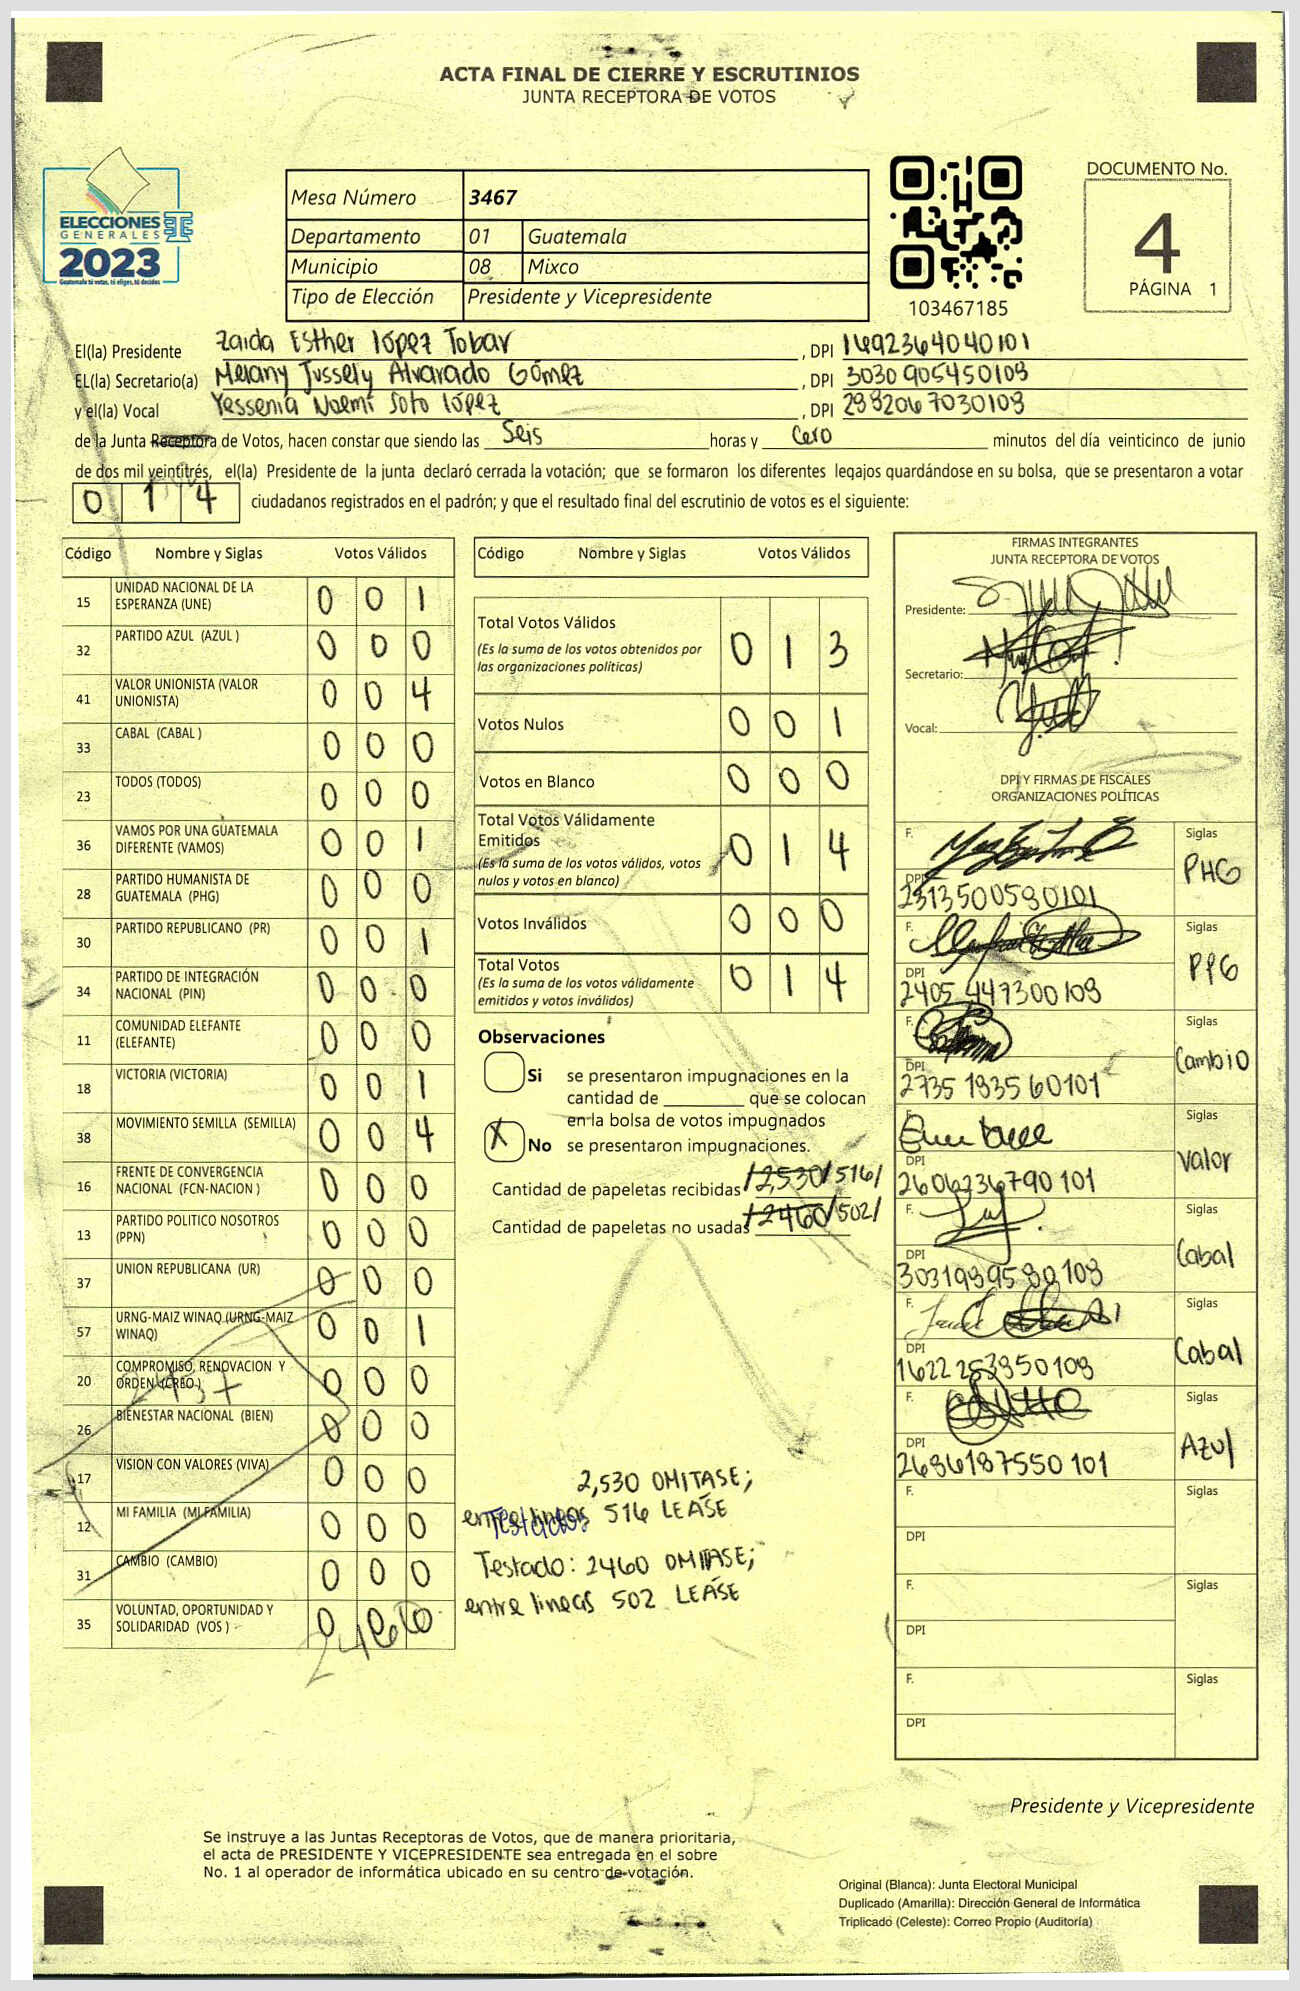 ACTA FINAL DE CIERRE Y ESCRUTINIOS
JUNTA RECEPTORA DE VOTOS
ELECCIONES
GENERALES
2023
Guatemala tú votas, tú eliges, tú decides
Mesa Número 3467
Departamento 01 Guatemala
Municipio 08 Mixco
Tipo de Elección Presidente y Vicepresidente
103467185
DOCUMENTO No.
4
PÁGINA 1
El(la) Presidente Zaida Esther López Tobar, DPI 1692364040101
EL(la) Secretario(a) Melany Jussely Alvarado Gómez, DPI 3030905450108
y el(la) Vocal Yessenia Noemí Soto López, DPI 2982067030108
de la Junta Receptora de Votos, hacen constar que siendo las Seis horas y Cero minutos del día veinticinco de junio
de dos mil veintitrés, el(la) Presidente de la junta declaró cerrada la votación; que se formaron los diferentes legajos quardándose en su bolsa, que se presentaron a votar
0 1 4 ciudadanos registrados en el padrón; y que el resultado final del escrutinio de votos es el siguiente:
Código Nombre y Siglas Votos Válidos
15 UNIDAD NACIONAL DE LA ESPERANZA (UNE) 0 0 1
32 PARTIDO AZUL (AZUL ) 0 0 0
41 VALOR UNIONISTA (VALOR UNIONISTA) 0 0 4
33 CABAL (CABAL ) 0 0 0
23 TODOS (TODOS) 0 0 0
36 VAMOS POR UNA GUATEMALA DIFERENTE (VAMOS) 0 0 1
28 PARTIDO HUMANISTA DE GUATEMALA (PHG) 0 0 0
30 PARTIDO REPUBLICANO (PR) 0 0 1
34 PARTIDO DE INTEGRACIÓN NACIONAL (PIN) 0 0 0
11 COMUNIDAD ELEFANTE (ELEFANTE) 0 0 0
18 VICTORIA (VICTORIA) 0 0 1
38 MOVIMIENTO SEMILLA (SEMILLA) 0 0 4
16 FRENTE DE CONVERGENCIA NACIONAL (FCN-NACION ) 0 0 0
13 PARTIDO POLITICO NOSOTROS (PPN) 0 0 0
37 UNION REPUBLICANA (UR) 0 0 0
57 URNG-MAIZ WINAQ (URNG-MAIZ WINAQ) 0 0 1
20 COMPROMISO, RENOVACION Y ORDEN (CREO ) 0 0 0
26 BIENESTAR NACIONAL (BIEN) 0 0 0
17 VISION CON VALORES (VIVA) 0 0 0
12 MI FAMILIA (MI FAMILIA) 0 0 0
31 CAMBIO (CAMBIO) 0 0 0
35 VOLUNTAD, OPORTUNIDAD Y SOLIDARIDAD (VOS ) 0 0 0
2460
Código Nombre y Siglas Votos Válidos
Total Votos Válidos 0 1 3
(Es la suma de los votos obtenidos por
las organizaciones políticas)
Votos Nulos 0 0 1
Votos en Blanco 0 0 0
Total Votos Válidamente
Emitidos 0 1 4
(Es la suma de los votos válidos, votos
nulos y votos en blanco)
Votos Inválidos 0 0 0
Total Votos 0 1 4
(Es la suma de los votos válidamente
emitidos y votos inválidos)
Observaciones
Si se presentaron impugnaciones en la
cantidad de ________ que se colocan
en la bolsa de votos impugnados
X No se presentaron impugnaciones.
Cantidad de papeletas recibidas /2,530/516/
Cantidad de papeletas no usadas /2460/502/
2,530 OMITASE;
entre lineas 516 LEASE
Testado: 2460 OMITASE;
entre lineas 502 LEASE
FIRMAS INTEGRANTES
JUNTA RECEPTORA DE VOTOS
Presidente:
Secretario:
Vocal:
DPI Y FIRMAS DE FISCALES
ORGANIZACIONES POLÍTICAS
F. Siglas
DPI PHG
2313500580101
F. Siglas
DPI PPG
2405 447300108
F. Siglas
DPI Cambio
2735 183560101
F. Siglas
DPI Valor
2606236790101
F. Siglas
DPI Cabal
3031989580108
F. Siglas
DPI Cabal
1622 253950108
F. Siglas
DPI Azul
2686187550101
F. Siglas
DPI
F. Siglas
DPI
F. Siglas
DPI
Presidente y Vicepresidente
Se instruye a las Juntas Receptoras de Votos, que de manera prioritaria,
el acta de PRESIDENTE Y VICEPRESIDENTE sea entregada en el sobre
No. 1 al operador de informática ubicado en su centro de votación.
Original (Blanca): Junta Electoral Municipal
Duplicado (Amarilla): Dirección General de Informática
Triplicado (Celeste): Correo Propio (Auditoría)